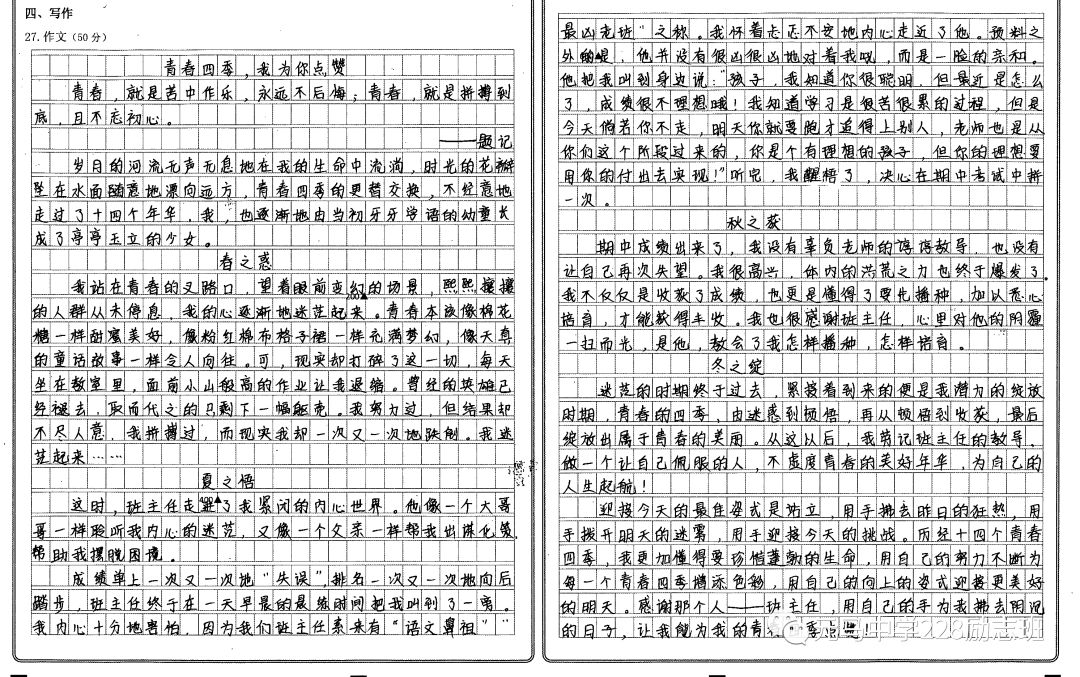 四、写作
27.作文（50分）
青春四季，我为你点赞
青春，就是苦中作乐，永远不后悔；青春，就是拼搏到
底，且不忘初心。
——题记
岁月的河流无声无息地在我的生命中流淌，时光的花瓣
坠在水面随意地漂向远方，青春四季的更替交换，不经意地
走过了十四个年华，我，也逐渐地由当初牙牙学语的幼童长
成了亭亭玉立的少女。
春之惑
我站在青春的叉路口，望着眼前变幻的场景，熙熙攘攘
的人群从未停息，我的心逐渐地迷茫起来。青春本该像棉花
糖一样甜蜜美好，像粉红棉布格子裙一样充满梦幻，像天真
的童话故事一样令人向往。可，现实却打碎了这一切，每天
坐在教室里，面前小山般高的作业让我退缩。曾经的英雄已
经褪去，取而代之的只剩下一幅躯壳。我努力过，但结果却
不尽人意，我拼搏过，而现实我却一次又一次地跌倒。我迷
茫起来……
夏之悟
这时，班主任走进了我紧闭的内心世界。他像一个大哥
哥一样聆听我内心的迷茫，又像一个父亲一样帮我出谋化策
帮助我摆脱困境。
成绩单上一次又一次地“失误”，排名一次又一次地向后
踏步，班主任终于在一天早晨的最练时间把我叫到了一旁。
我内心十分地害怕，因为我们班主任素来有“语文鼻祖”“
最凶老班”之称。我怀着忐忑不安地内心走近了他。预料之
外的是，他并没有很凶很凶地对着我吼，而是一脸的亲和。
他把我叫到身边说：“孩子，我知道你很聪明，但最近是怎么
了，成绩很不理想哦！我知道学习是很苦很累的过程，但是
今天倘若你不走，明天你就要跑才追得上别人，老师也是从
你们这个阶段过来的，你是个有理想的孩子，但你的理想要
用你的付出去实现！”听完，我醒悟了，决心在期中考试中拼
一次。
秋之获
期中成绩出来了，我没有辜负老师的谆谆教导，也没有
让自己再次失望。我很高兴，体内的洪荒之力也终于爆发了。
我不仅仅是收获了成绩，也更是懂得了要先播种，加以悉心
培育，才能获得丰收。我也很感谢班主任，心里对他的阴霾
一扫而光，是他，教会了我怎样播种，怎样培育。
冬之绽
迷茫的时期终于过去，紧接着到来的便是我潜力的绽放
时期，青春的四季，由迷惑到顿悟，再从顿悟到收获，最后
绽放出属于青春的美丽。从这以后，我劳记班主任的教导，
做一个让自己佩服的人，不虚度青春的美好年华，为自己的
人生起航！
迎接今天的最佳姿式是站立，用手拂去昨日的狂热，用
手拨开明天的迷雾，用手迎接今天的挑战。历经十四个青春
四季，我更加懂得要珍惜蓬勃的生命，用自己的努力不断为
每一个青春四季增添色彩，用自己的向上的姿式迎接更美好
的明天。感谢那个人——班主任，用自己的手为我拂去阴沉
的日子，让我能为我的青春四季点赞！
中学228励志班